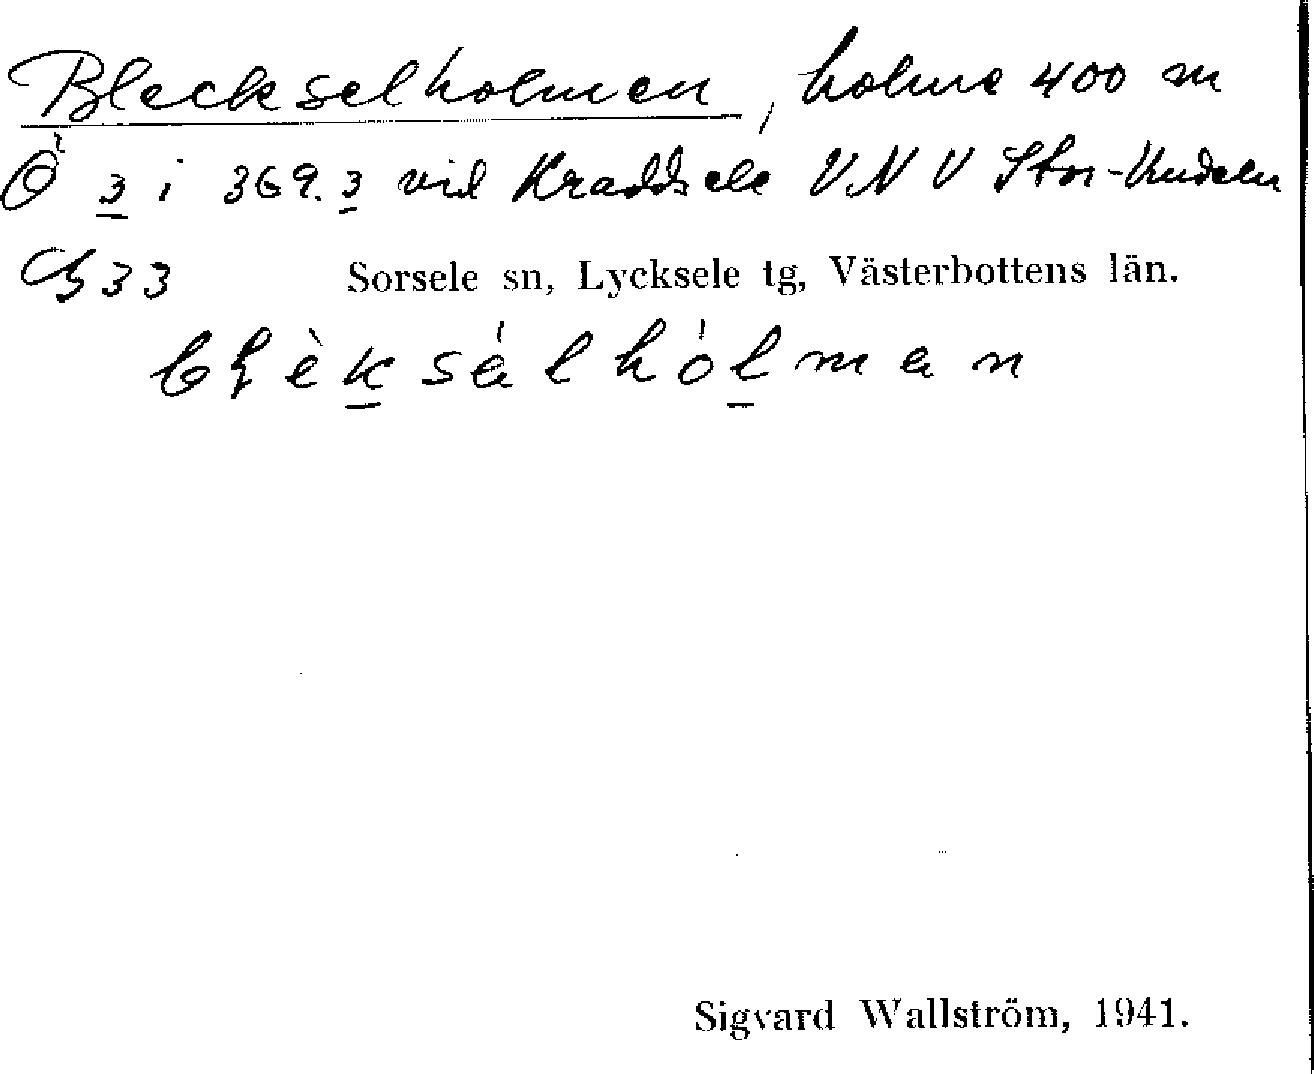 Bleckselholmen, holme 400 m
Ö 3 i 369.3 vid Kraddsele VNV Stor-
33 Sorsele sn, Lycksele tg, Västerbottens län.
Sigvard Wallström, 1941.